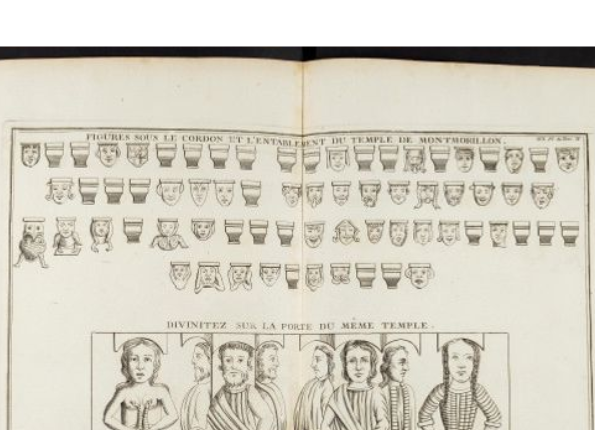 FIGURES SOUS LE CORDON ET L'ENTABLEMENT DU TEMPLE DE MONTMORILLON.
DIVINITEZ SUR LA PORTE DU MÊME TEMPLE.